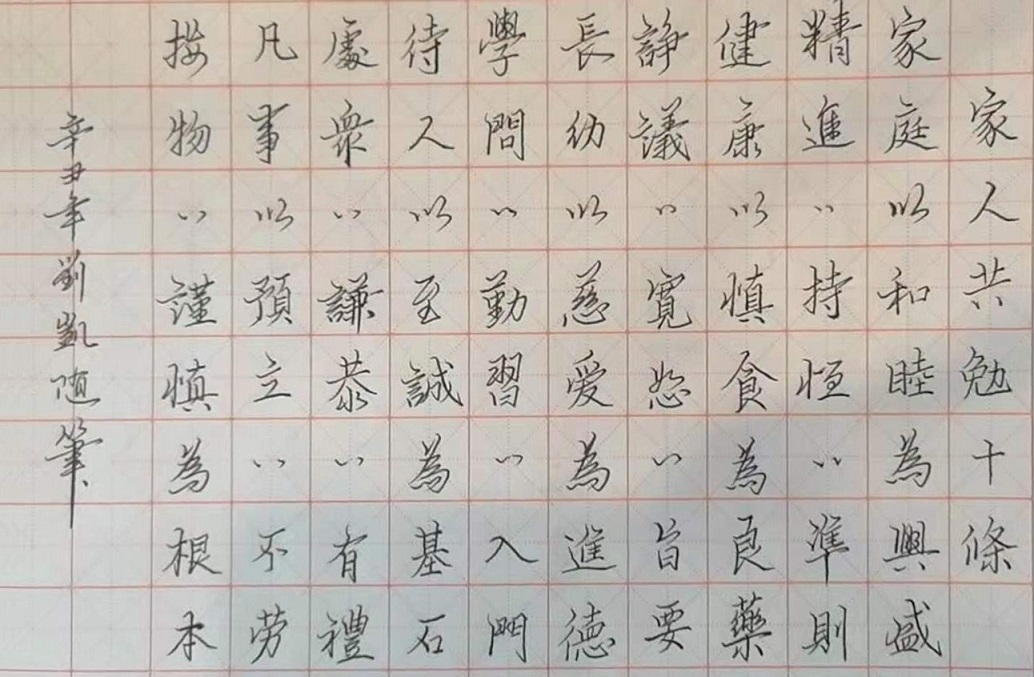 家人共勉十條
家庭以和睦為興盛
精進〃持恒〃準則
健康以慎食為良藥
諍議〃寬恕〃旨要
長幼以慈爱為進德
學問〃勤習〃入門
待人以至誠為基石
處衆〃謙恭〃有禮
凡事以預立〃不劳
接物〃謹慎為根本
辛丑年劉凱随筆